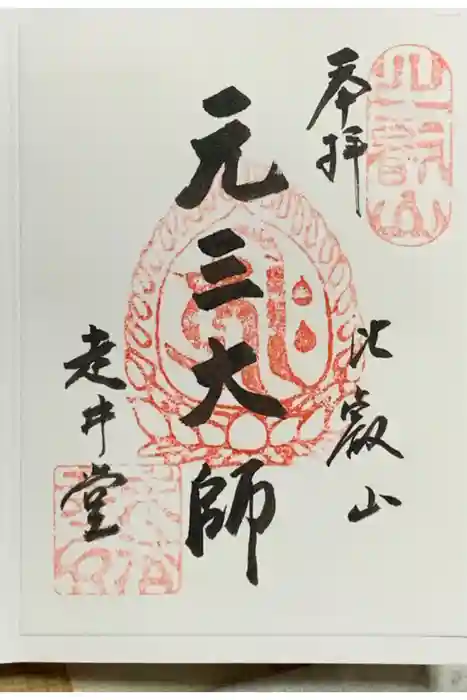 奉拝
比叡山
元三大師
走井堂